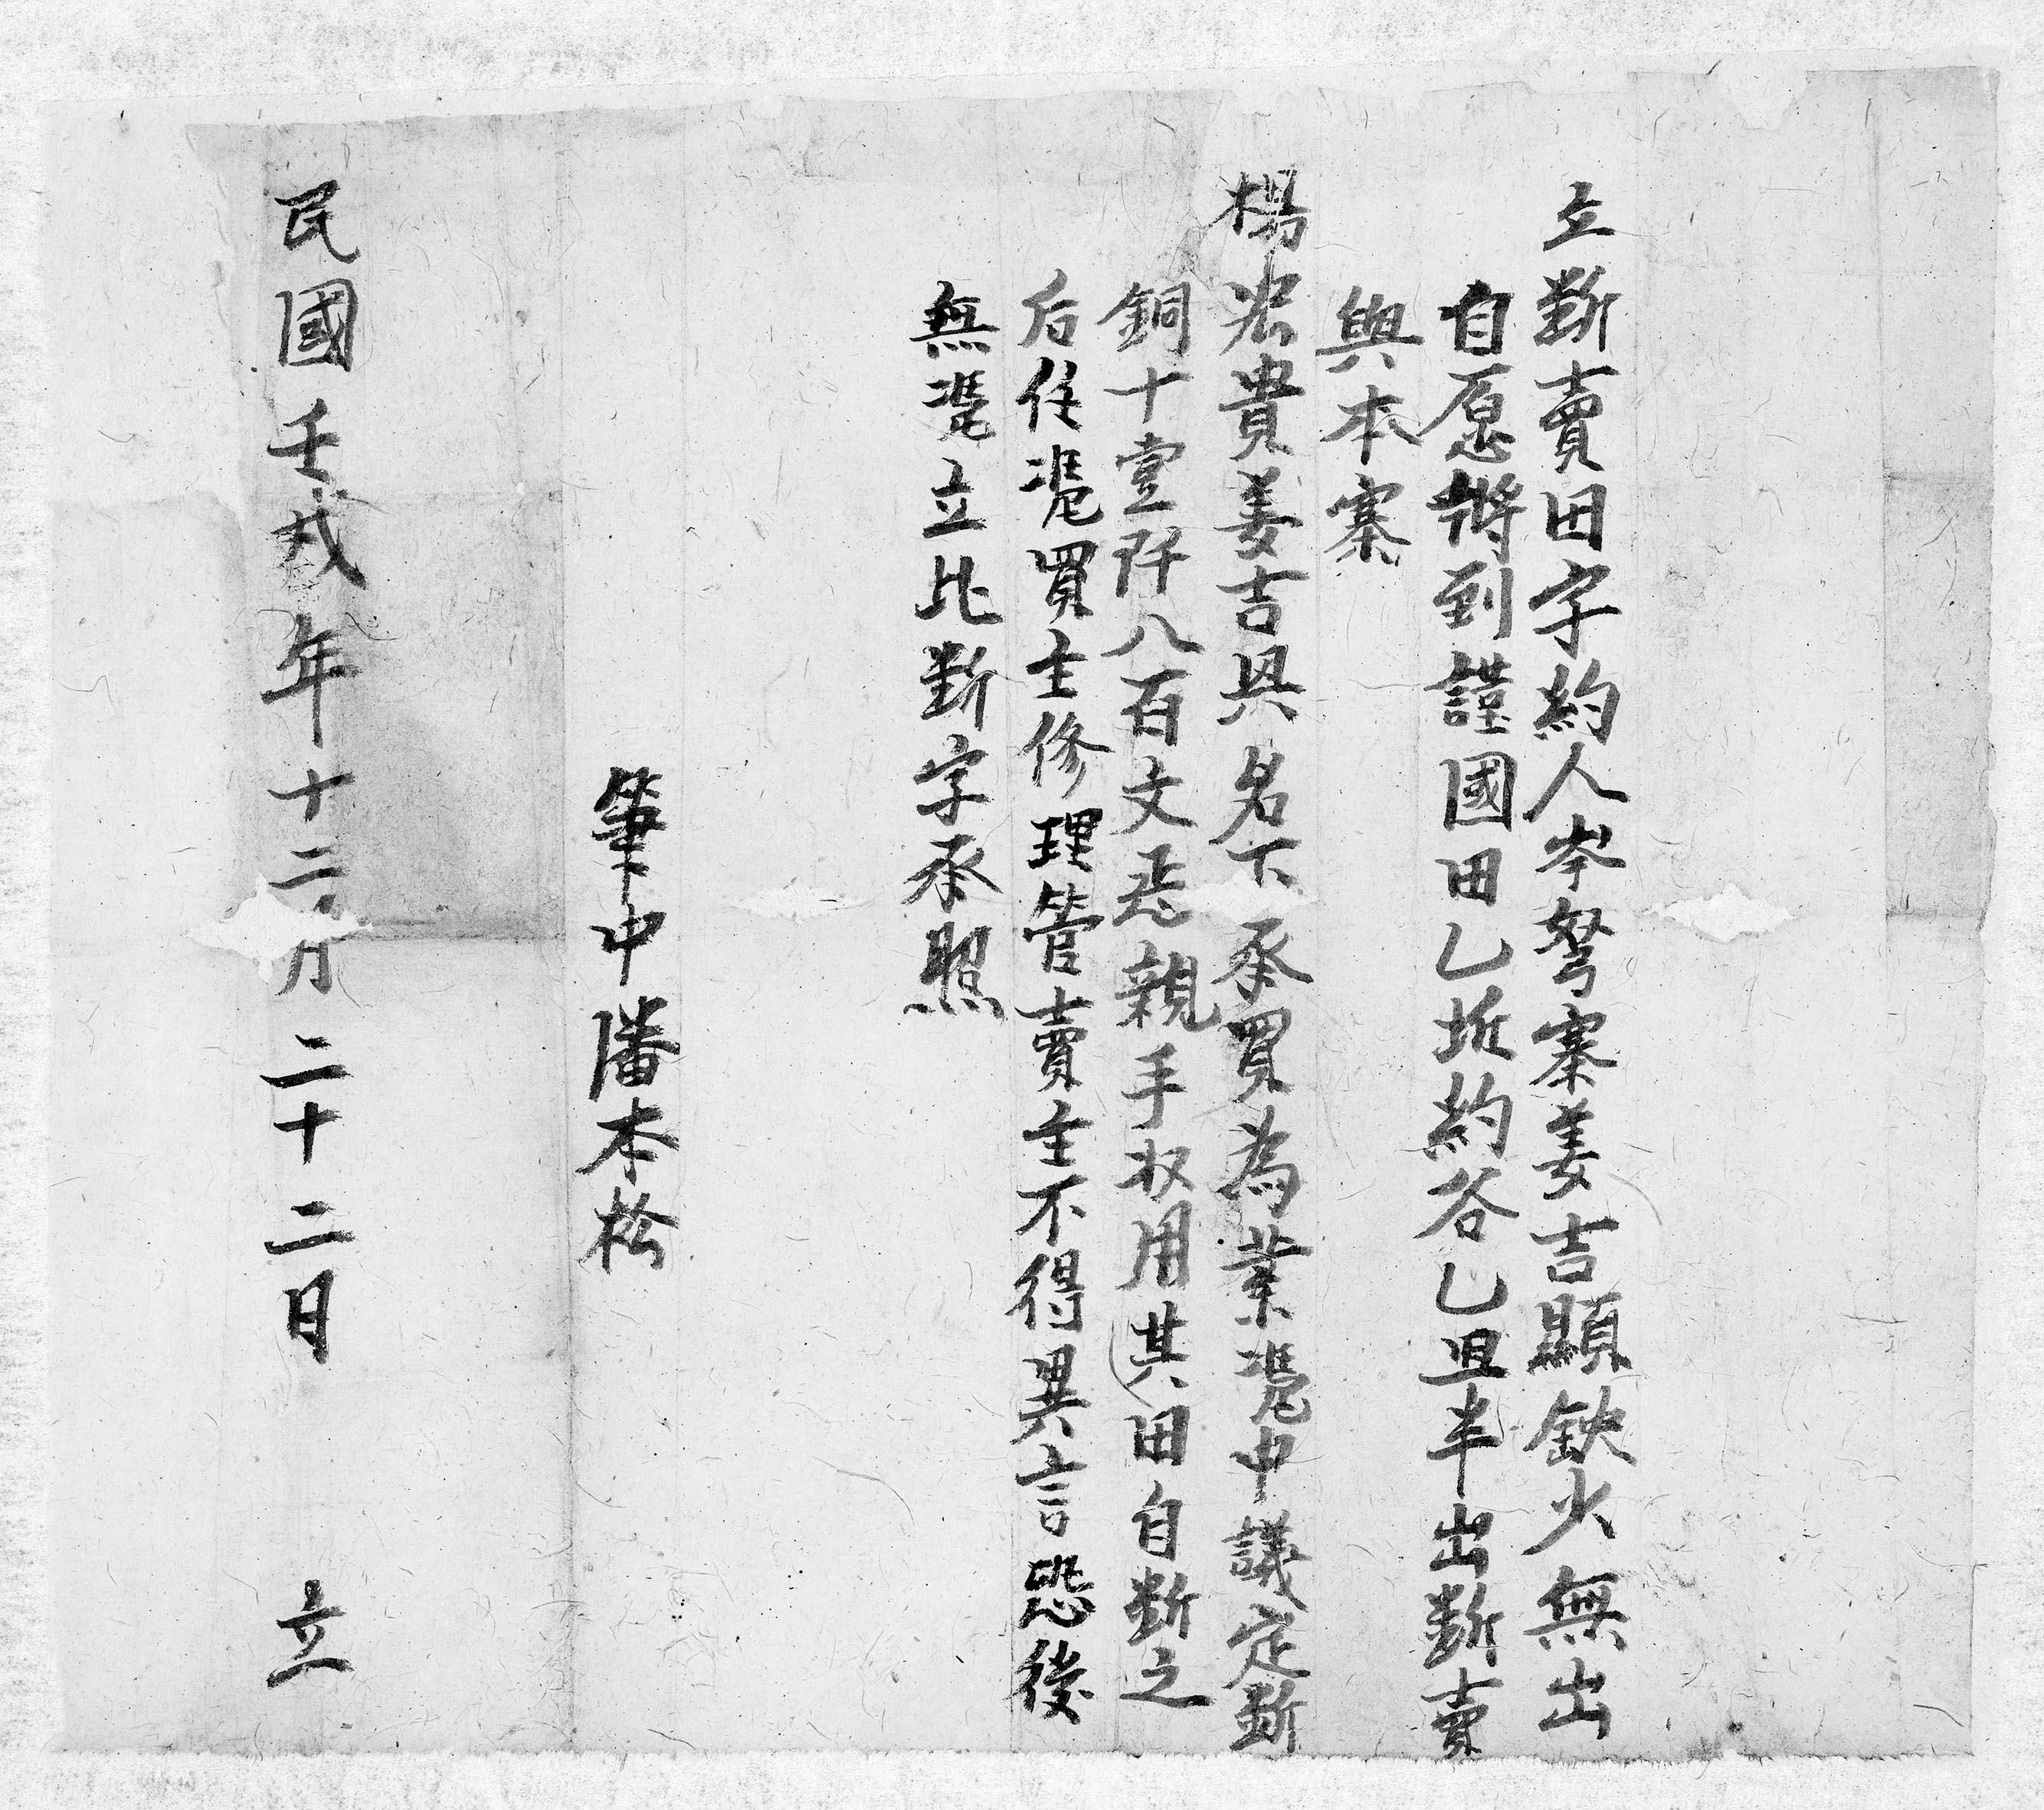 立斷賣田字約人岑弩寨姜吉顯缺少無出
自愿將到謹國田乙坵約谷乙且半出斷賣
與本寨
楊宏貴姜吉具名下承買為業凴中議定斷
銅十壹阡八百文恁親手收用其田自斷之
后任凴買主修理管賣主不得異言恐後
無凴立此斷字承照
筆中潘本松
民國壬戌年十二月二十二日 立